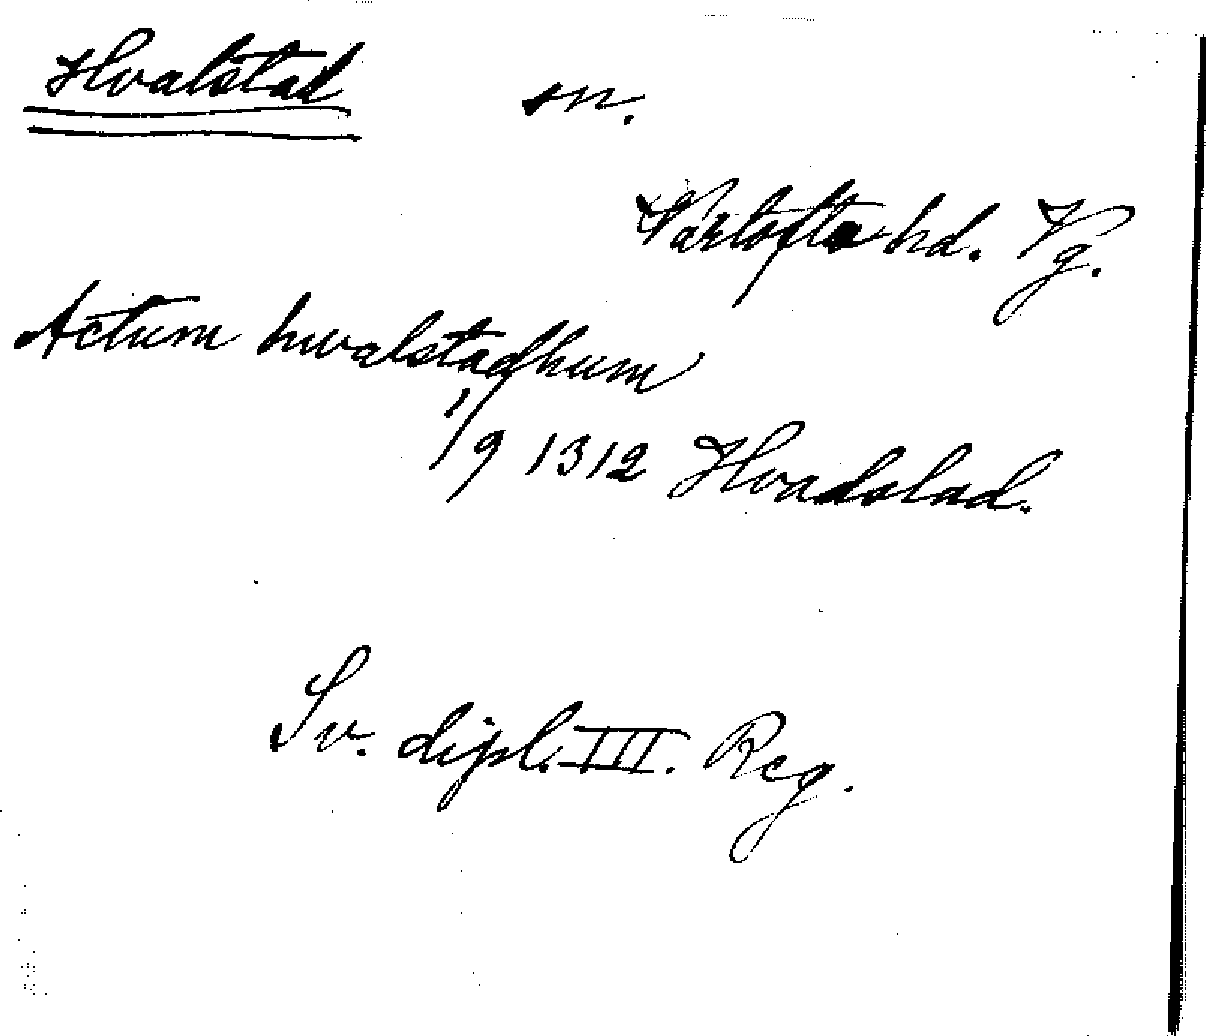 Hvalstad sn.
Vartofta hd. Vg.
Actum hwalstadhum
1/9 1312 Hvadslad.
Sv. dipl. III. Reg.